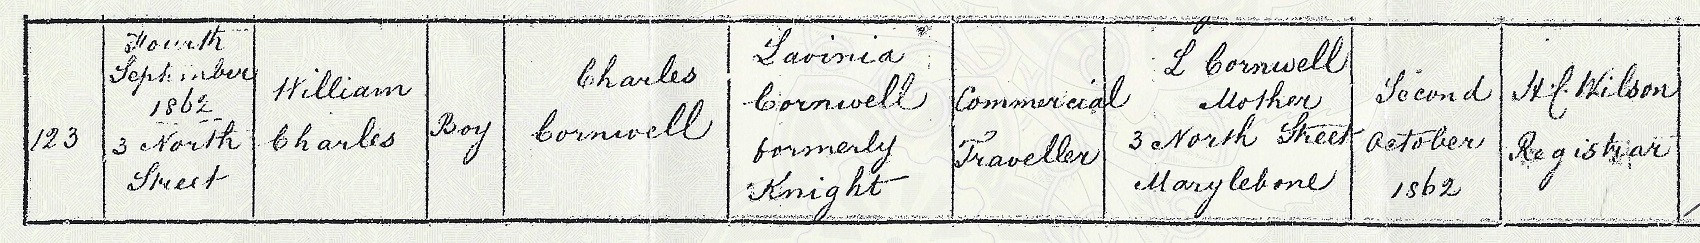 123
Fourth
September
1862
3 North
Street
William
Charles
Boy
Charles
Cornwell
Lavinia
Cornwell
formerly
Knight
Commercial
Traveller
L Cornwell
Mother
3 North Street
Marylebone
Second
October
1862
H C Wilson
Registrar